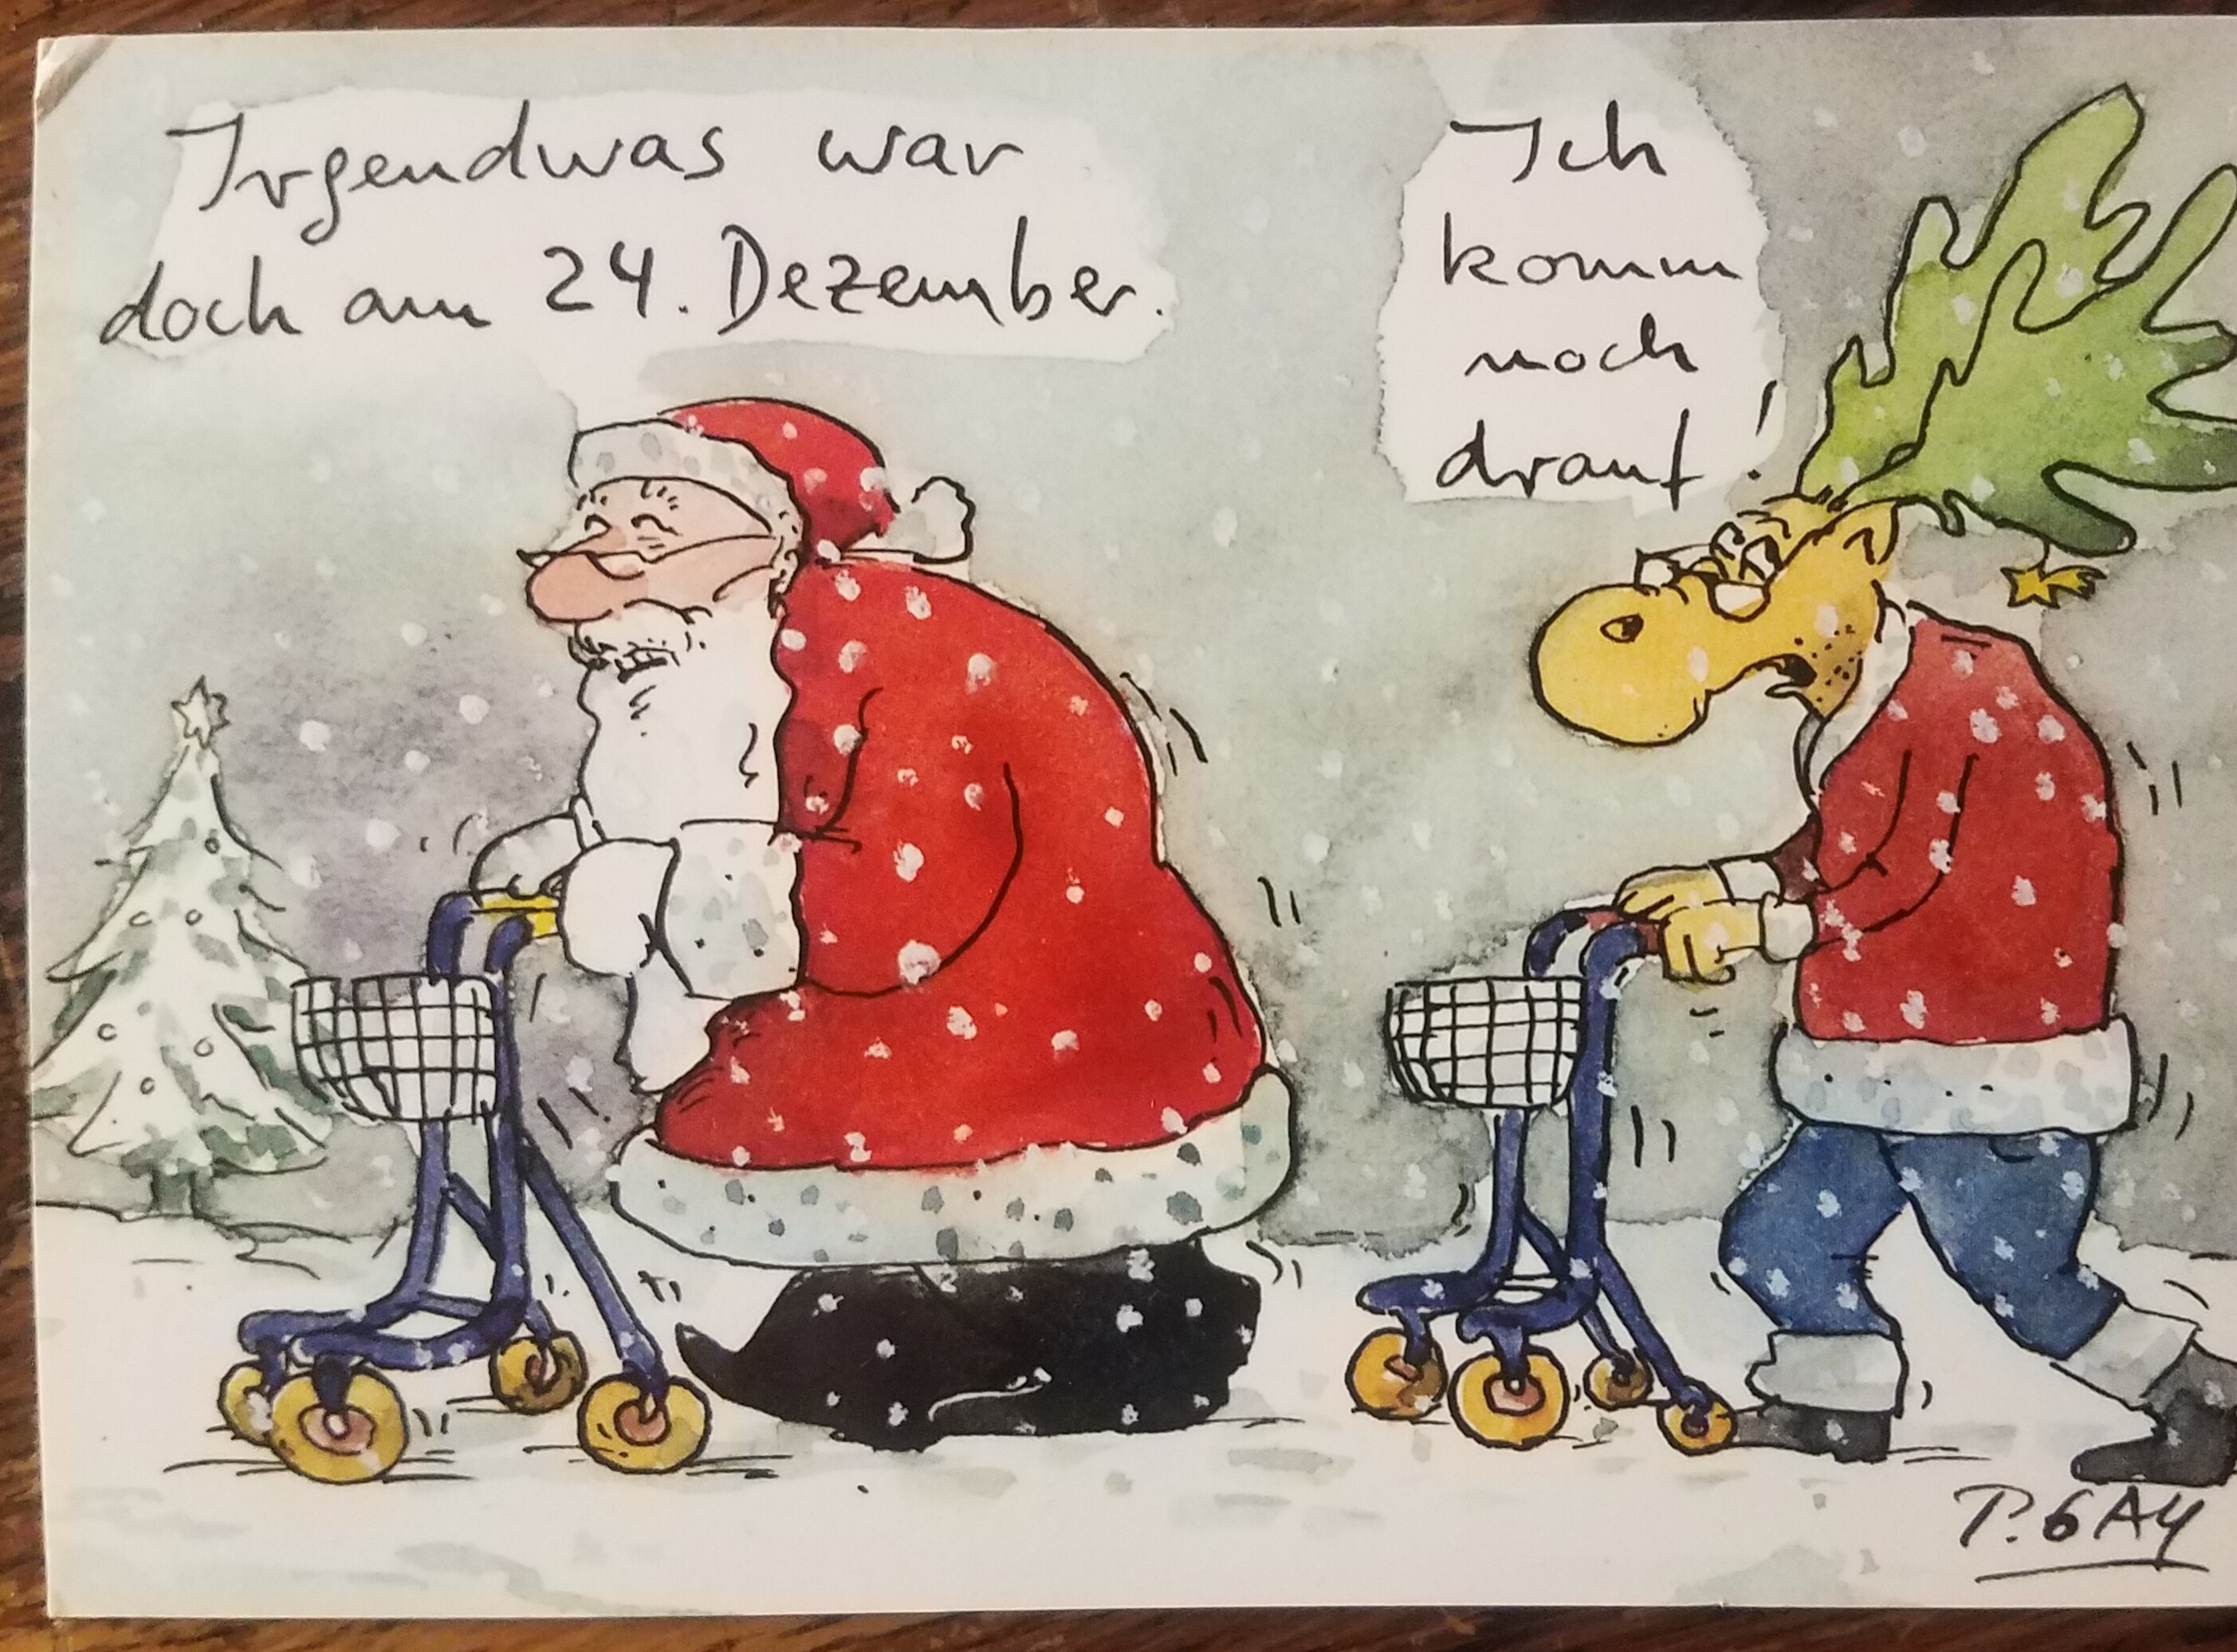 Irgendwas war
doch am 24. Dezember.
Ich
komm
noch
drauf!
P. GAY